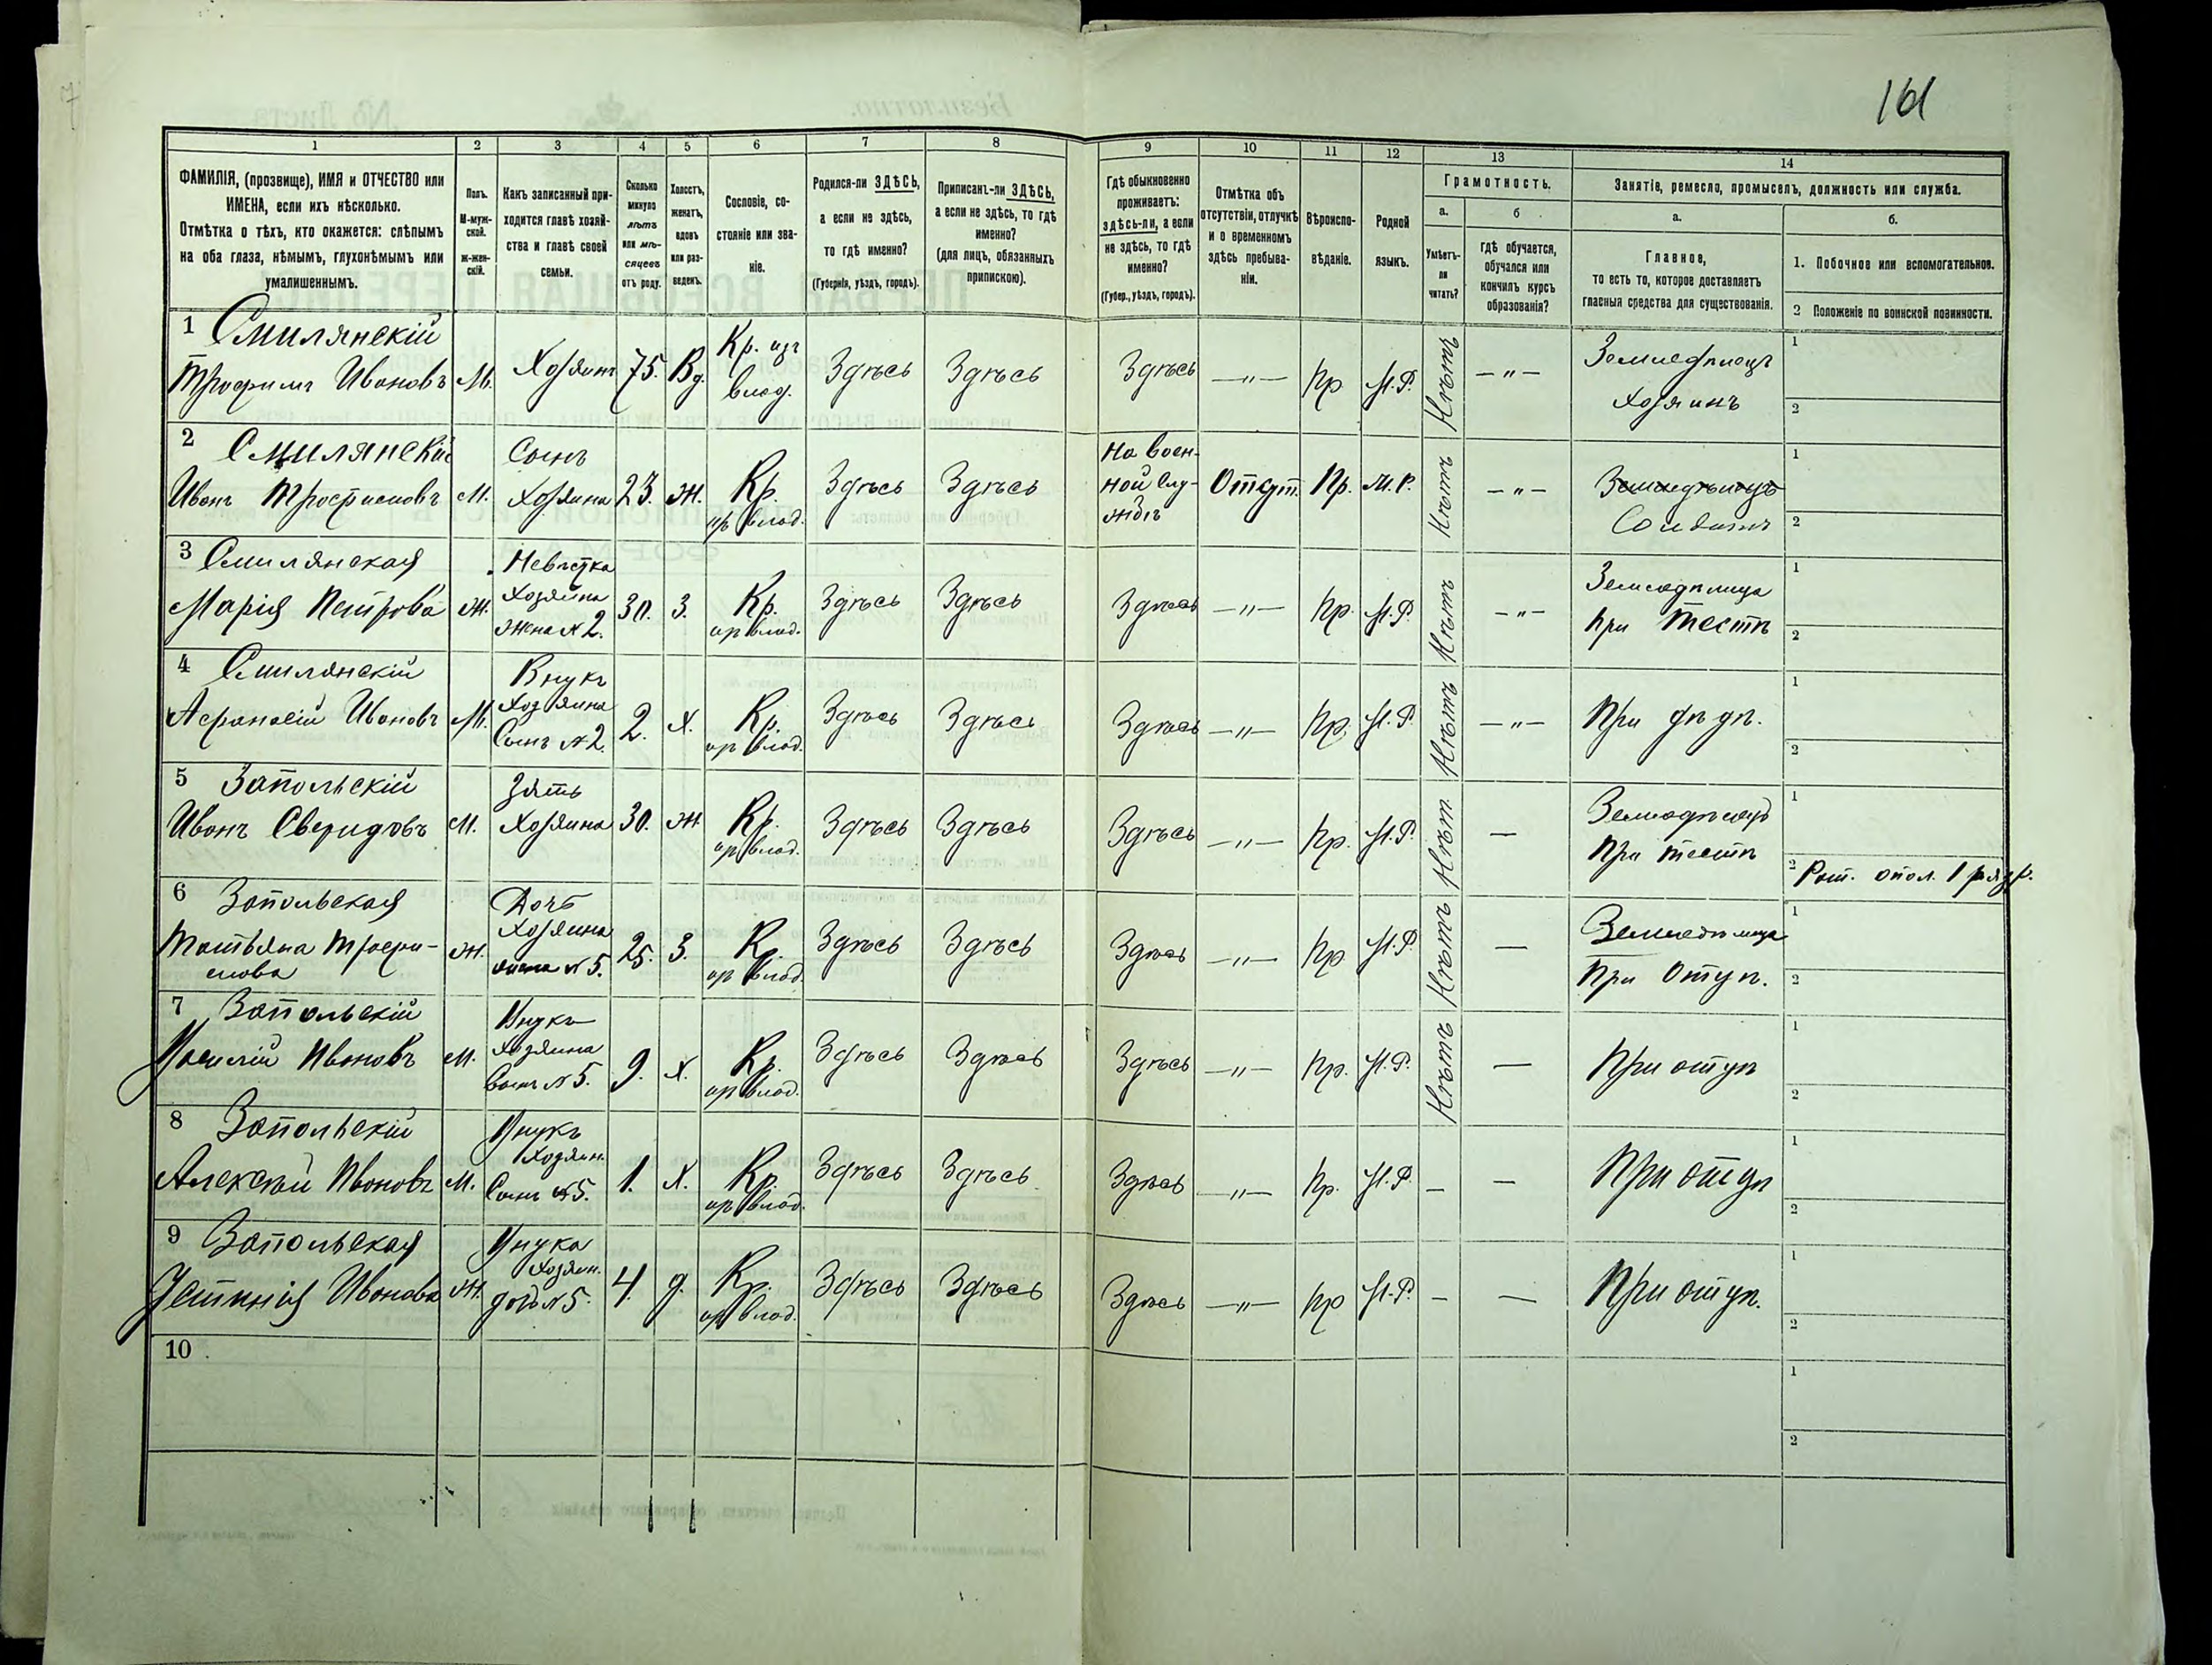 161
1 2 3 4 5 6 7 8 9 10 11 12 13 14
ФАМИЛІЯ, (прозвище), ИМЯ и ОТЧЕСТВО или
ИМЕНА, если ихъ нѣсколько.
Отмѣтка о тѣхъ, кто окажется: слѣпымъ
на оба глаза, нѣмымъ, глухонѣмымъ или
умалишеннымъ.
Полъ.
М-муж-
ской.
Ж-жен-
скій.
Какъ записанный при-
ходится главѣ хозяй-
ства и главѣ своей
семьи.
Сколько
минуло
лѣтъ
или мѣ-
сяцевъ
отъ роду.
Холостъ,
женатъ,
вдовъ
или раз-
веденъ.
Сословіе, со-
стояніе или зва-
ніе.
Родился-ли ЗДѢСЬ,
а если не здѣсь,
то гдѣ именно?
(Губернія, уѣздъ, городъ).
Приписанъ-ли ЗДѢСЬ,
а если не здѣсь, то гдѣ
именно?
(для лицъ, обязанныхъ
припискою).
Гдѣ обыкновенно
проживаетъ:
здѣсь-ли, а если
не здѣсь, то гдѣ
именно?
(Губер., уѣздъ, городъ).
Отмѣтка объ
отсутствіи, отлучкѣ
и о временномъ
здѣсь пребыва-
ніи.
Вѣроиспо-
вѣданіе.
Родной
языкъ.
Грамотность.
а.
Умѣетъ-
ли
читать?
б.
гдѣ обучается,
обучался или
кончилъ курсъ
образованія?
Занятіе, ремесло, промыселъ, должность или служба.
а.
Главное,
то есть то, которое доставляетъ
главныя средства для существованія.
б.
1. Побочное или вспомогательное.
2 Положеніе по воинской повинности.
1 Смилянскій
Трофимъ Ивановъ М. Хозяинъ 75. Вд. Кр. изъ
влад. Здѣсь Здѣсь Здѣсь —"— Пр М.Р. Нѣтъ —"— Земледѣлецъ
хозяинъ
1
2
2 Смилянскій
Иванъ Трофимовъ М. Сынъ
Хозяина 23. Ж. Кр.
из влад. Здѣсь Здѣсь На воен-
ной слу-
жбѣ Отсут. Пр. М.Р. Нѣтъ —"— Земледѣлецъ
Солдатъ
1
2
3 Смилянская
Марія Петрова Ж. Невѣстка
Хозяина
жена №2. 30. З. Кр.
из влад. Здѣсь Здѣсь Здѣсь —"— Пр. М.Р. Нѣтъ —"— Земледѣлица
при тестѣ
1
2
4 Смилянскій
Афанасій Ивановъ М. Внукъ
Хозяина
Сынъ №2. 2. Х. Кр.
из влад. Здѣсь Здѣсь Здѣсь —"— Пр. М.Р. Нѣтъ —"— При дѣдѣ.
1
2
5 Запольскій
Иванъ Свиридовъ М. Зять
Хозяина 30. Ж Кр.
из влад. Здѣсь Здѣсь Здѣсь —"— Пр. М.Р. Нѣтъ — Земледѣлецъ
При тестѣ
1
2 Рат. опол. 1 разр.
6 Запольская
Татьяна Трофи-
мова Ж. Дочь
Хозяина
жена №5. 25. З. Кр.
из влад. Здѣсь Здѣсь Здѣсь —"— Пр М.Р. Нѣтъ — Земледѣлица
При отцѣ.
1
2
7 Запольскій
Василій Ивановъ М. Внукъ
Хозяина
Сынъ №5. 9. Х. Кр.
из влад. Здѣсь Здѣсь Здѣсь —"— Пр. М.Р. Нѣтъ — При отцѣ
1
2
8 Запольскій
Алексѣй Ивановъ М. Внукъ
Хозяин.
Сынъ №5. 1. Х. Кр.
из влад. Здѣсь Здѣсь. Здѣсь —"— Пр. М.Р. — — При отцѣ
1
2
9 Запольская
Устинія Иванова Ж. Внука
Хозяин.
дочь №5. 4. д. Кр.
из влад. Здѣсь Здѣсь Здѣсь —"— Пр М.Р. — — При отцѣ.
1
2
10
1
2